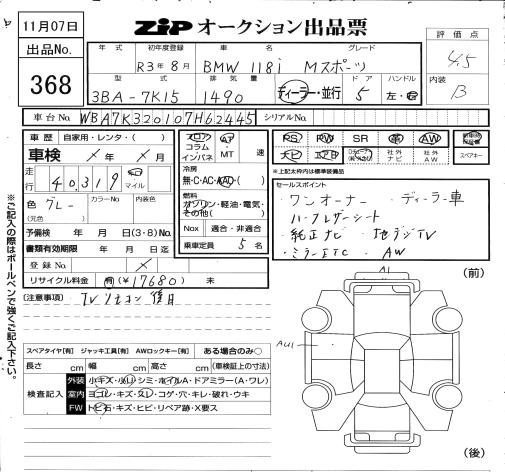 11月07日
ZIP オークション出品票
評価点
4.5
出品No.
368
年式
初年度登録
車名
グレード
R3年8月 BMW 118i Mスポーツ
内装
B
型式
排気量
ドア
ハンドル
3BA-7K15 1490 ディーラー・並行 5 左・右
車台No. WBA7K320107H62445 シリアルNo.
車歴 自家用・レンタ・( )
車検 年 月
走行 40,319 km マイル
色 グレー
(元色)
カラーNo.
内装色
予備検 年 月 日(3・8)No.
書類有効期限 年 月 日迄
登録No.
リサイクル料金 有(¥17680) 未
フロア
コラム
インパネ
AT
MT
速
冷房
無・C・AC・AAC・( )
燃料
ガソリン・軽油・電気・
その他( )
Nox 適合・非適合
乗車定員 5名
PS PW SR 革 AW
ナビ エアB 社外ナビ 社外AW スペアキー
※上記太枠内は標準装備品
セールスポイント
ワンオーナー ディーラー車
ハーフレザーシート
純正ナビ 地デジTV
ミラーETC AW
(注意事項) TVリモコン後日
A1
(前)
AU1
※ご記入の際はボールペンで強くご記入下さい。
スペアタイヤ[有] ジャッキ工具[有] AWロックキー[有] ある場合のみ○
長さ cm 幅 cm 高さ cm (車検証上の寸法)
検査記入
外装 小キズ・小リ・シミ・ホイルA・ドアミラー(A・ワレ)
室内 ヨゴレ・キズ・スレ・コゲ・穴・キレ・破れ・ウキ
FW トビ石・キズ・ヒビ・リペア跡・X要ス
(後)